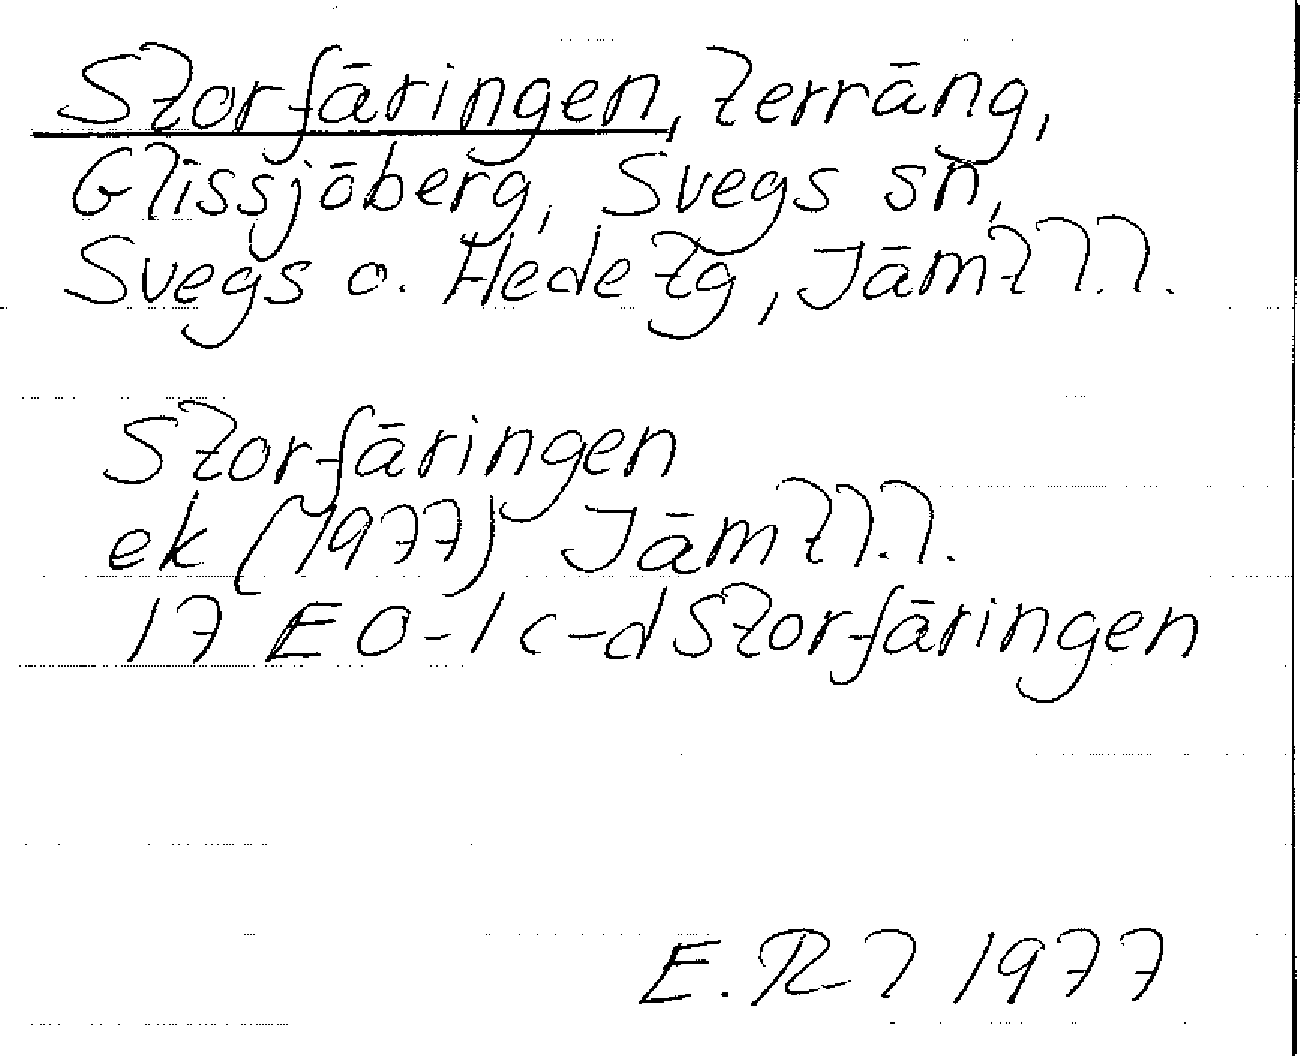 Storfäringen, terräng,
Glissjöberg, Svegs sn,
Svegs o. Hede tg, Jämtl.l.
Storfäringen
ek (1977) Jämtl.l.
17 E 0-1 c-d Storfäringen
E. Rl 1977